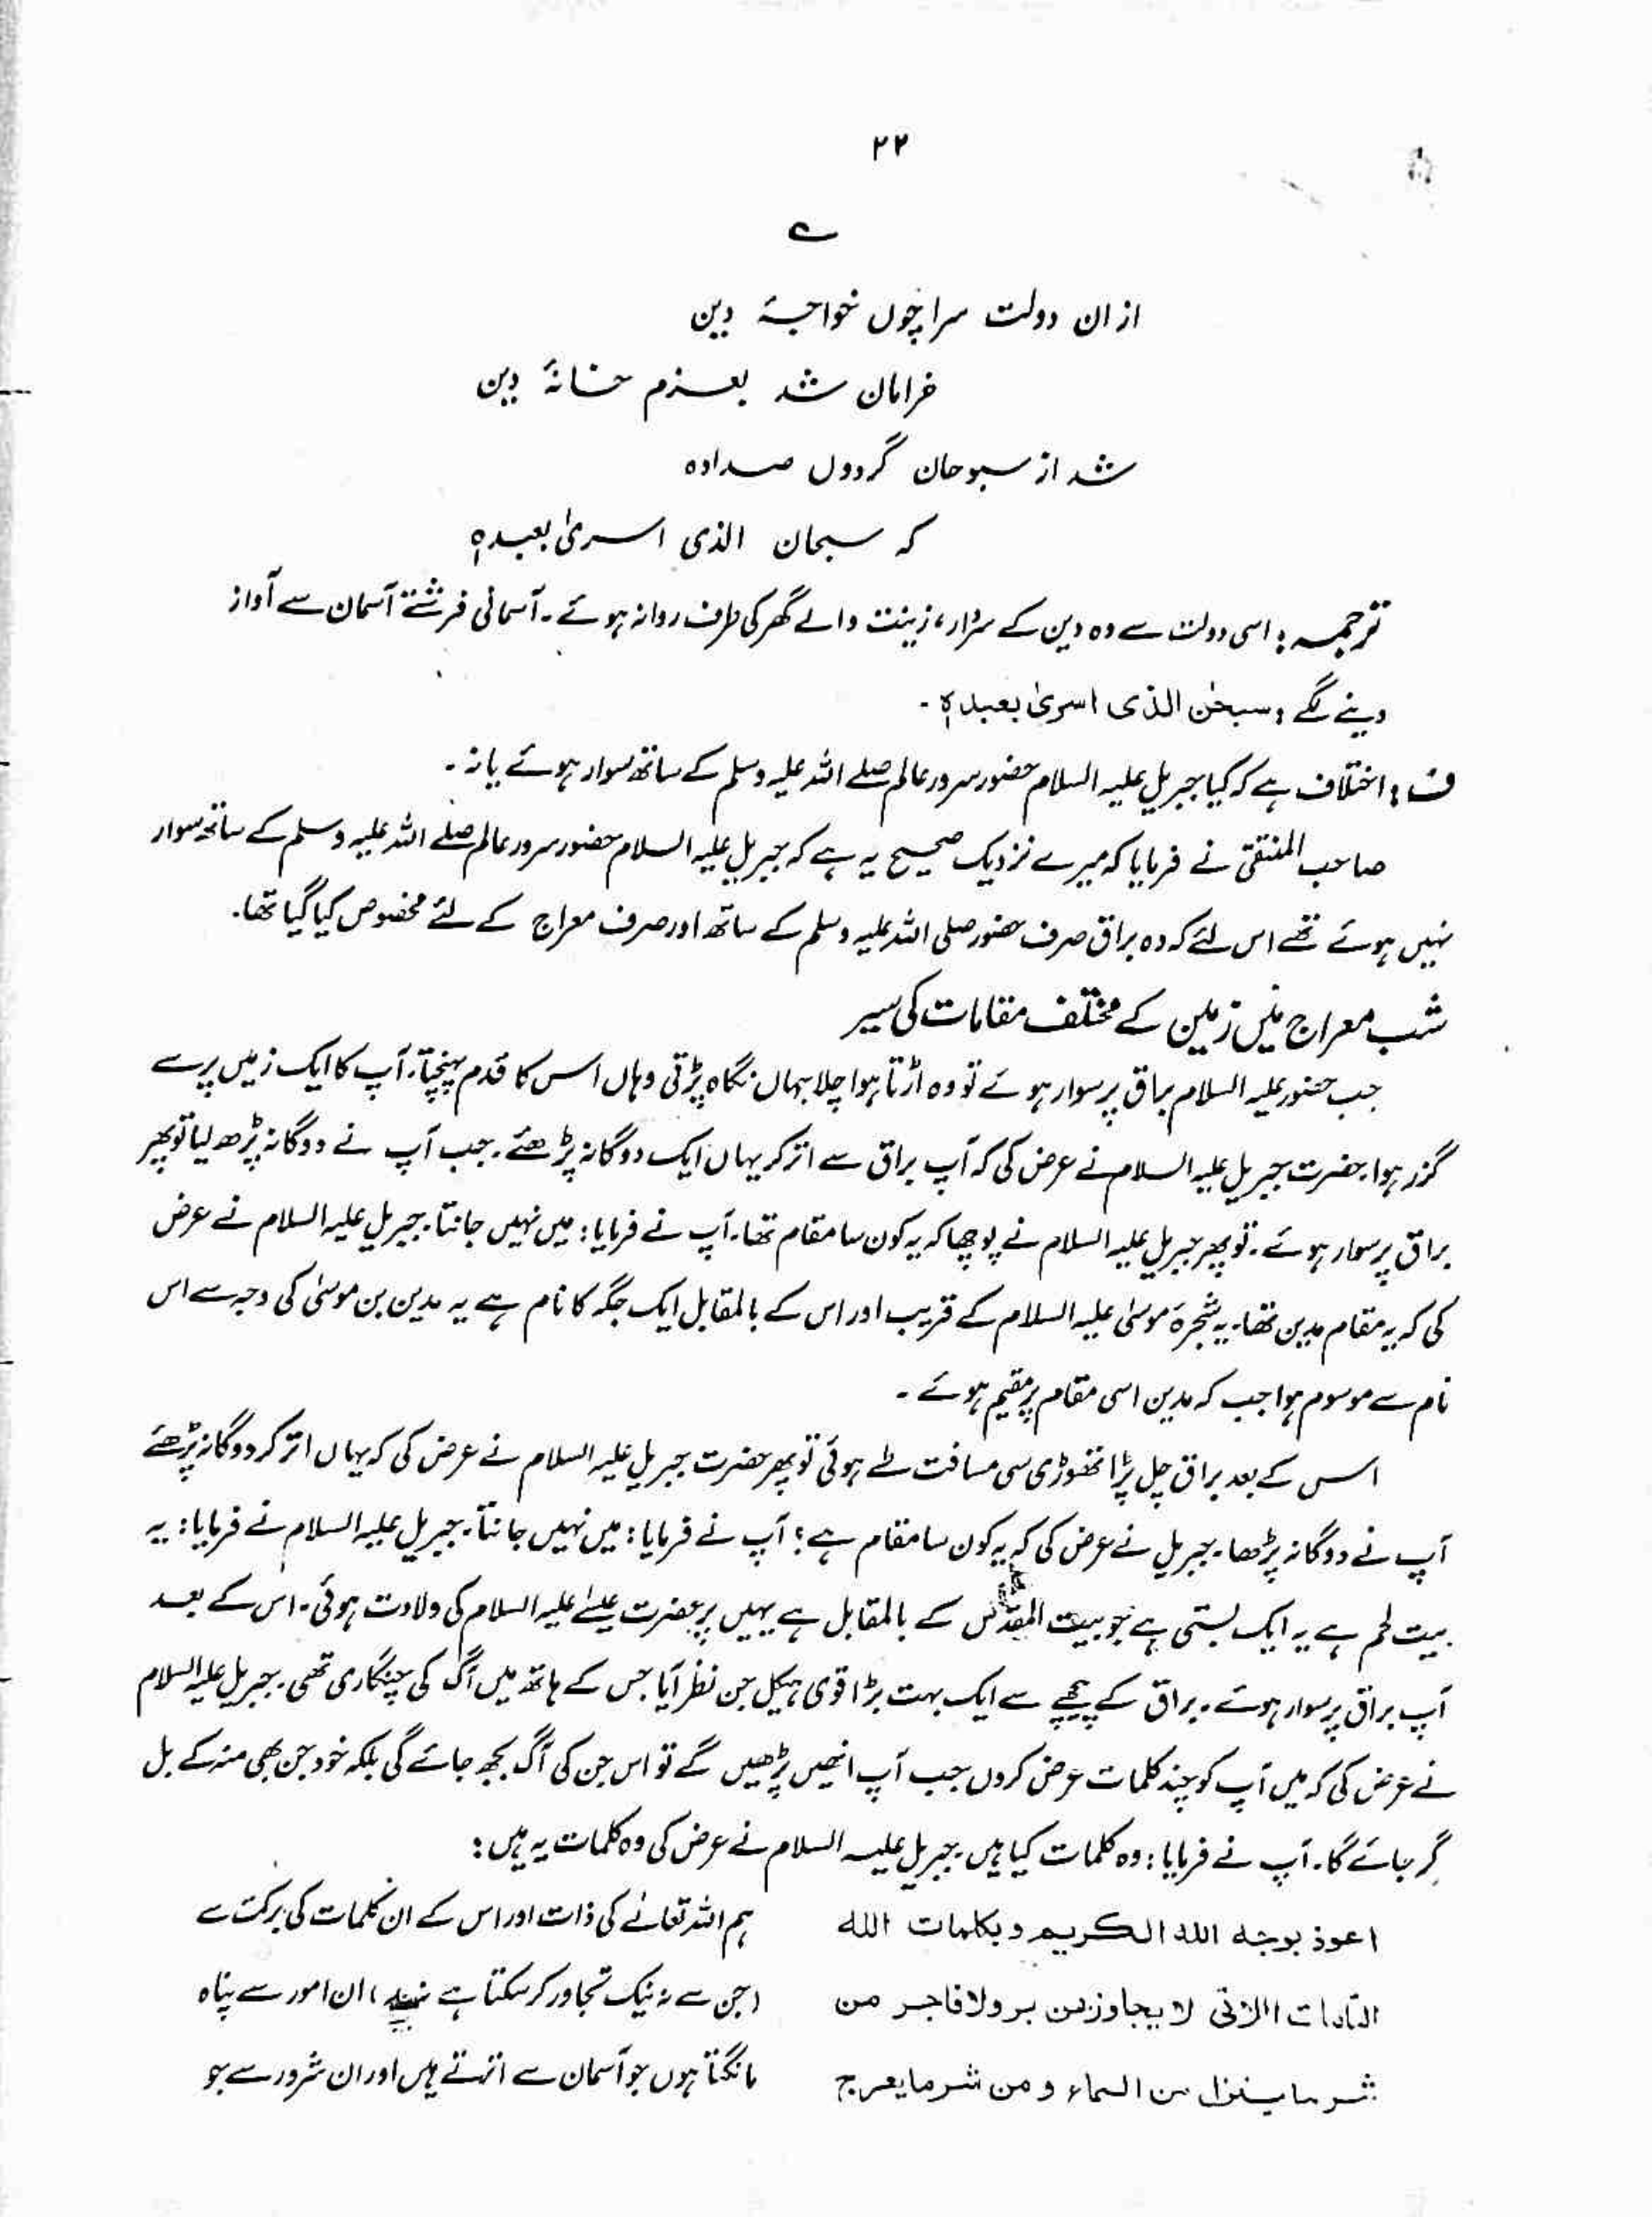 ۲۲
ے
ازان دولت سرا چوں خواجۂ دین
خرامان شد بعزم خانۂ دین
شد از سبوحان گردوں صدادہ
کہ سبحان الذی اسریٰ بعبدہٖ
ترجمہ: اسی دولت سے وہ دین کے سردار، زینت والے گھر کی طرف روانہ ہوئے۔ آسمانی فرشتے آسمان سے آواز
دینے لگے: سبحٰن الذی اسریٰ بعبدہٖ۔
ف: اختلاف ہے کہ کیا جبریل علیہ السلام حضور سرور عالم صلے اللہ علیہ وسلم کے ساتھ سوار ہوئے یا نہ۔
صاحب المنتقی نے فرمایا کہ میرے نزدیک صحیح یہ ہے کہ جبریل علیہ السلام حضور سرور عالم صلے اللہ علیہ وسلم کے ساتھ سوار
نہیں ہوئے تھے اس لئے کہ وہ براق صرف حضور صلی اللہ علیہ وسلم کے ساتھ اور صرف معراج کے لئے مخصوص کیا گیا تھا۔
شب معراج میں زمین کے مختلف مقامات کی سیر
جب حضور علیہ السلام براق پر سوار ہوئے تو وہ اڑتا ہوا چلا جہاں نگاہ پڑتی وہاں اس کا قدم پہنچتا۔ آپ کا ایک زمیں پر سے
گزر ہوا۔ حضرت جبریل علیہ السلام نے عرض کی کہ آپ براق سے اتر کر یہاں ایک دوگانہ پڑھئے۔ جب آپ نے دوگانہ پڑھ لیا تو پھر
براق پر سوار ہوئے۔ تو پھر جبریل علیہ السلام نے پوچھا کہ یہ کون سا مقام تھا۔ آپ نے فرمایا: میں نہیں جانتا۔ جبریل علیہ السلام نے عرض
کی کہ یہ مقام مدین تھا۔ یہ شجرۂ موسیٰ علیہ السلام کے قریب اور اس کے بالمقابل ایک جگہ کا نام ہے یہ مدین بن موسیٰ کی وجہ سے اس
نام سے موسوم ہوا جب کہ مدین اسی مقام پر مقیم ہوئے۔
اس کے بعد براق چل پڑا تھوڑی سی مسافت طے ہوئی تو پھر حضرت جبریل علیہ السلام نے عرض کی کہ یہاں اتر کر دوگانہ پڑھئے
آپ نے دوگانہ پڑھا۔ جبریل نے عرض کی کہ یہ کون سا مقام ہے؟ آپ نے فرمایا: میں نہیں جانتا۔ جبریل علیہ السلام نے فرمایا: یہ
بیت لحم ہے یہ ایک بستی ہے جو بیت المقدس کے بالمقابل ہے یہیں پر حضرت عیسےٰ علیہ السلام کی ولادت ہوئی۔ اس کے بعد
آپ براق پر سوار ہوئے۔ براق کے پیچھے سے ایک بہت بڑا قوی ہیکل جن نظر آیا جس کے ہاتھ میں آگ کی چنگاری تھی۔ جبریل علیہ السلام
نے عرض کی کہ میں آپ کو چند کلمات عرض کروں جب آپ انھیں پڑھیں گے تو اس جن کی آگ بجھ جائے گی بلکہ خود جن بھی منہ کے بل
گر جائے گا۔ آپ نے فرمایا: وہ کلمات کیا ہیں۔ جبریل علیہ السلام نے عرض کی وہ کلمات یہ ہیں:
اعوذ بوجہ اللہ الکریم و بکلمات اللہ
التامات اللاتی لا یجاوزہن بر ولا فاجر من
شر ما ینزل من السماء و من شر ما یعرج
ہم اللہ تعالےٰ کی ذات اور اس کے ان کلمات کی برکت سے
(جن سے نہ نیک تجاوز کر سکتا ہے نہ بد)، ان امور سے پناہ
مانگتا ہوں جو آسمان سے اترتے ہیں اور ان شرور سے جو